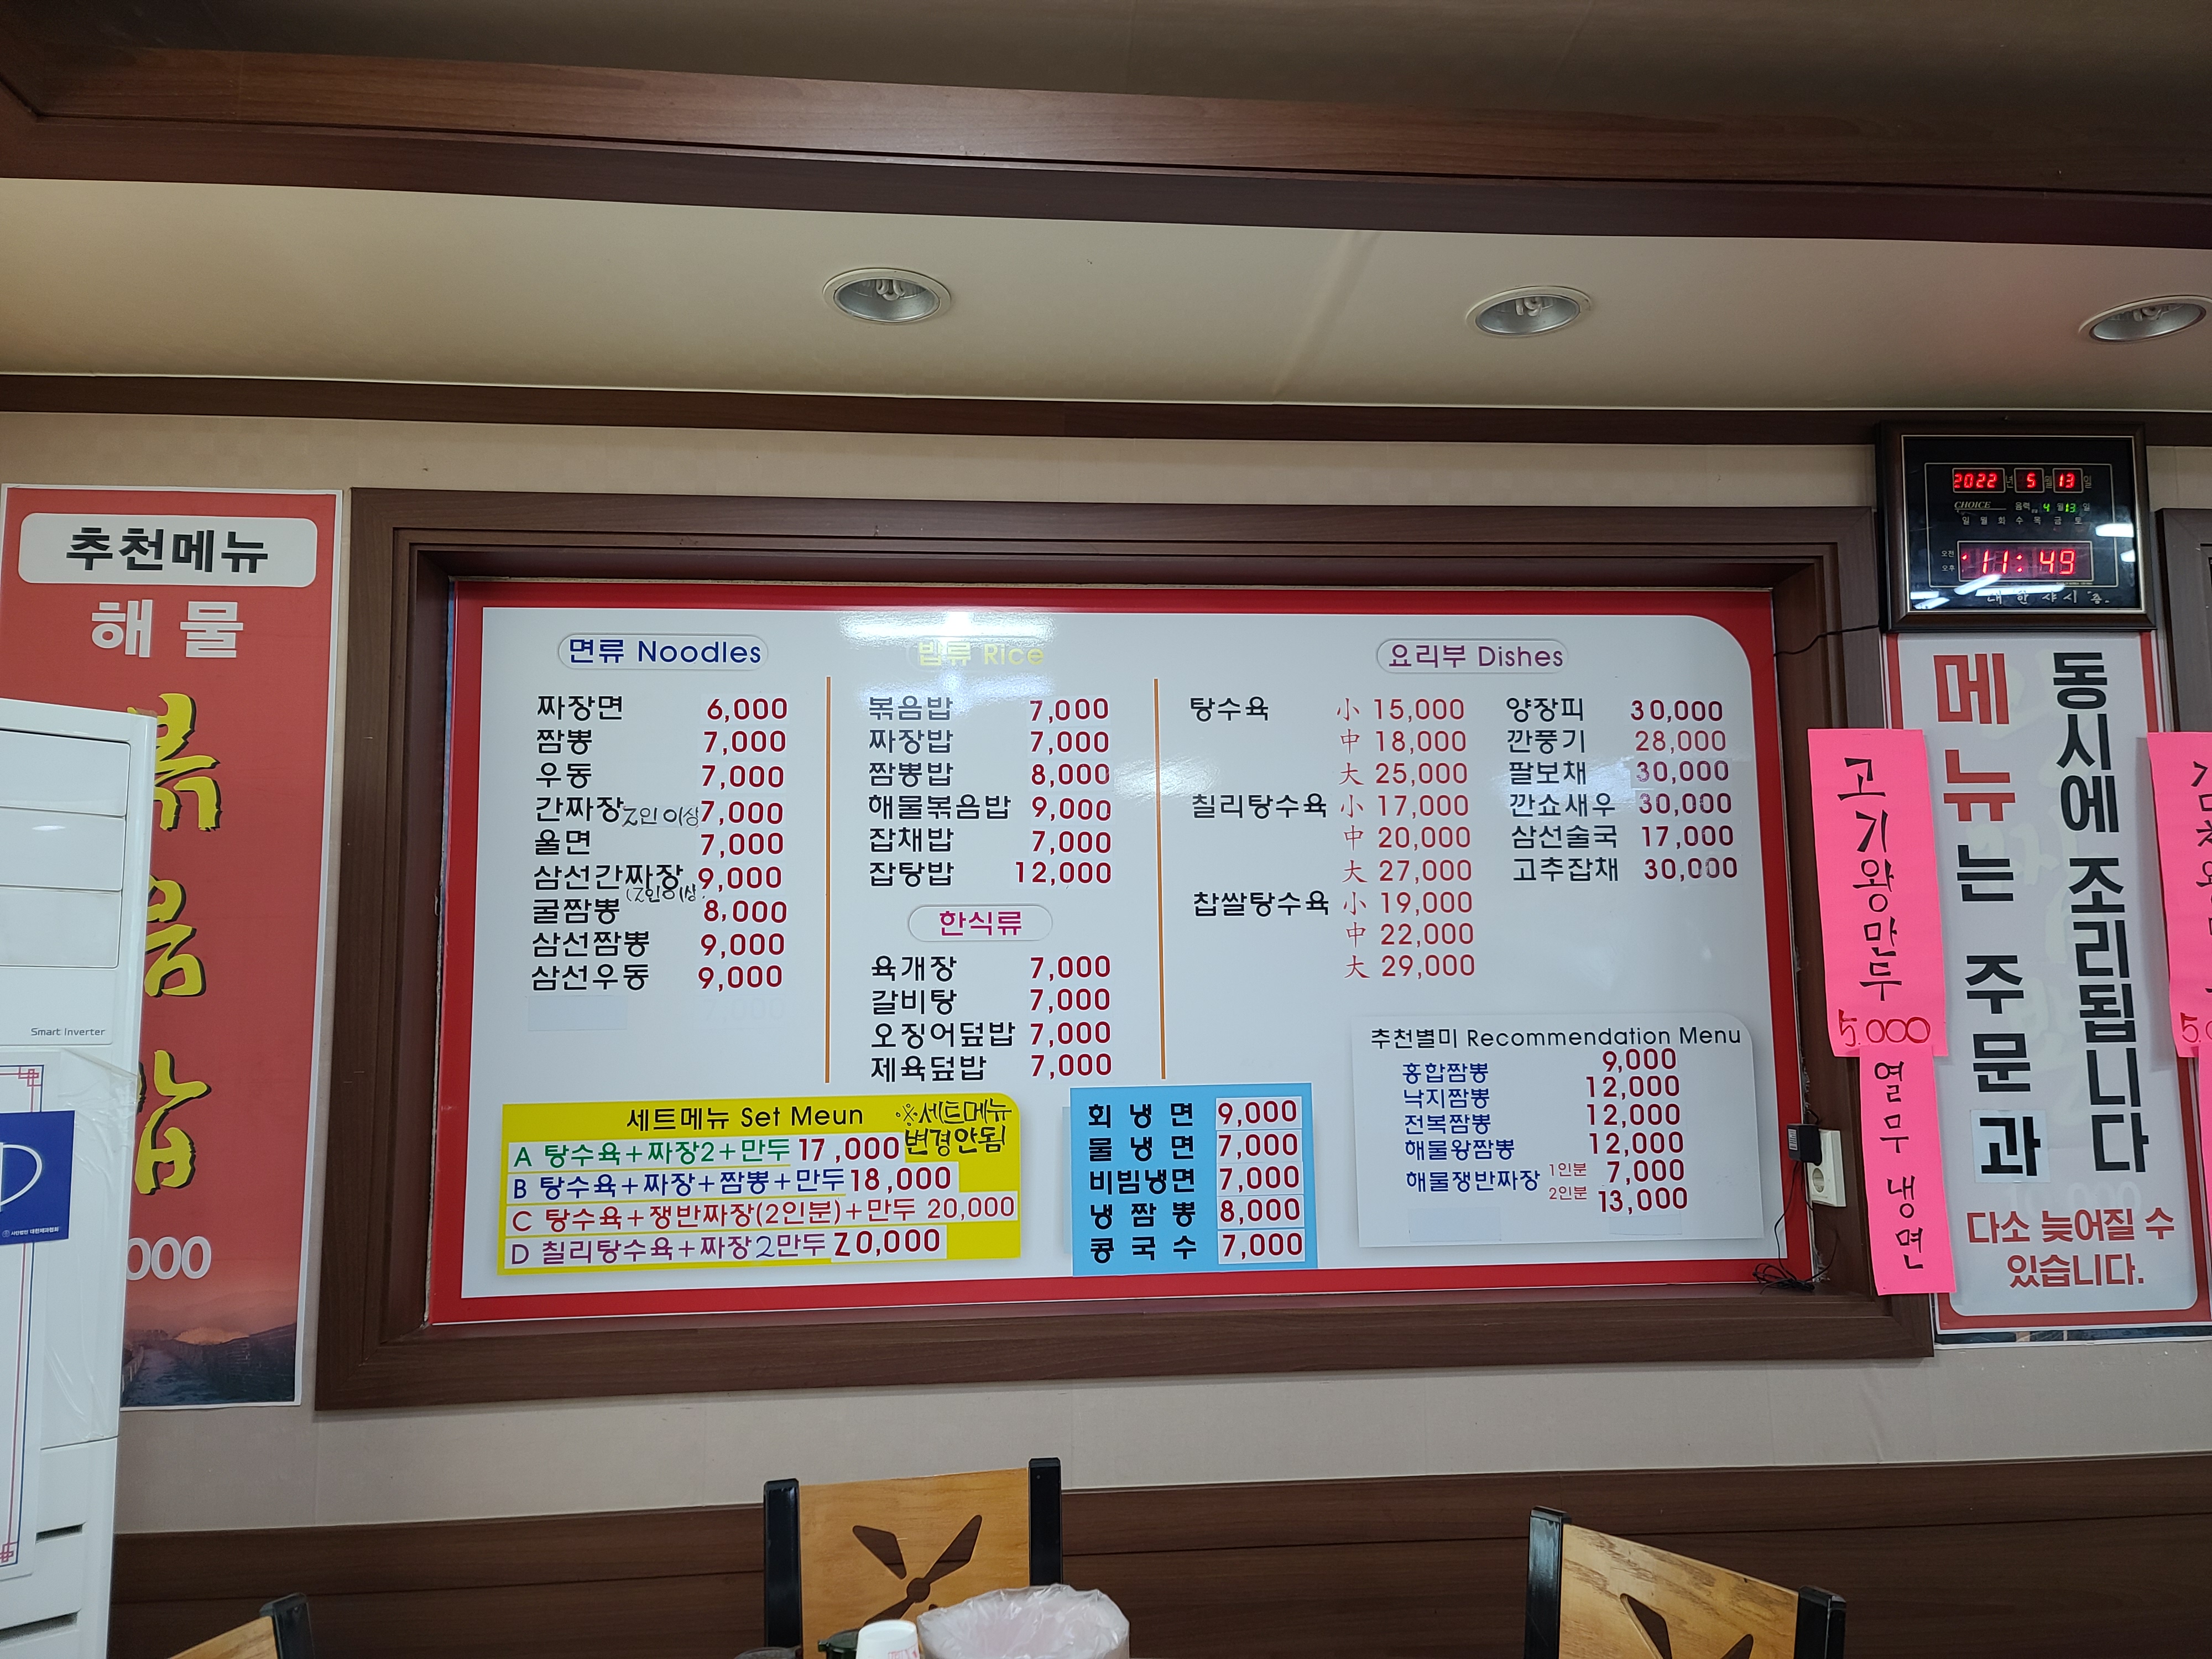 추천메뉴
해물
볶
음
밥
000
Smart Inverter
면류 Noodles
짜장면 6,000
짬뽕 7,000
우동 7,000
간짜장 2인 이상 7,000
울면 7,000
삼선간짜장 (2인이상) 9,000
굴짬뽕 8,000
삼선짬뽕 9,000
삼선우동 9,000
밥류 Rice
볶음밥 7,000
짜장밥 7,000
짬뽕밥 8,000
해물볶음밥 9,000
잡채밥 7,000
잡탕밥 12,000
한식류
육개장 7,000
갈비탕 7,000
오징어덮밥 7,000
제육덮밥 7,000
요리부 Dishes
탕수육 小 15,000
中 18,000
大 25,000
칠리탕수육 小 17,000
中 20,000
大 27,000
찹쌀탕수육 小 19,000
中 22,000
大 29,000
양장피 30,000
깐풍기 28,000
팔보채 30,000
깐쇼새우 30,000
삼선술국 17,000
고추잡채 30,000
세트메뉴 Set Meun
※세트메뉴
변경안됨
A 탕수육+짜장2+만두 17,000
B 탕수육+짜장+짬뽕+만두 18,000
C 탕수육+쟁반짜장(2인분)+만두 20,000
D 칠리탕수육+짜장2만두 20,000
회냉면 9,000
물냉면 7,000
비빔냉면 7,000
냉짬뽕 8,000
콩국수 7,000
추천별미 Recommendation Menu
홍합짬뽕 9,000
낙지짬뽕 12,000
전복짬뽕 12,000
해물왕짬뽕 12,000
해물쟁반짜장 1인분 7,000
2인분 13,000
2022 년 5 월 13 일
CHOICE 음력 4 월 13 일
일 월 화 수 목 금 토
오전
오후
11:49
대한샤시
고기왕만두
5,000
열무냉면
동시에 조리됩니다
메뉴는 주문과
다소 늦어질 수
있습니다.